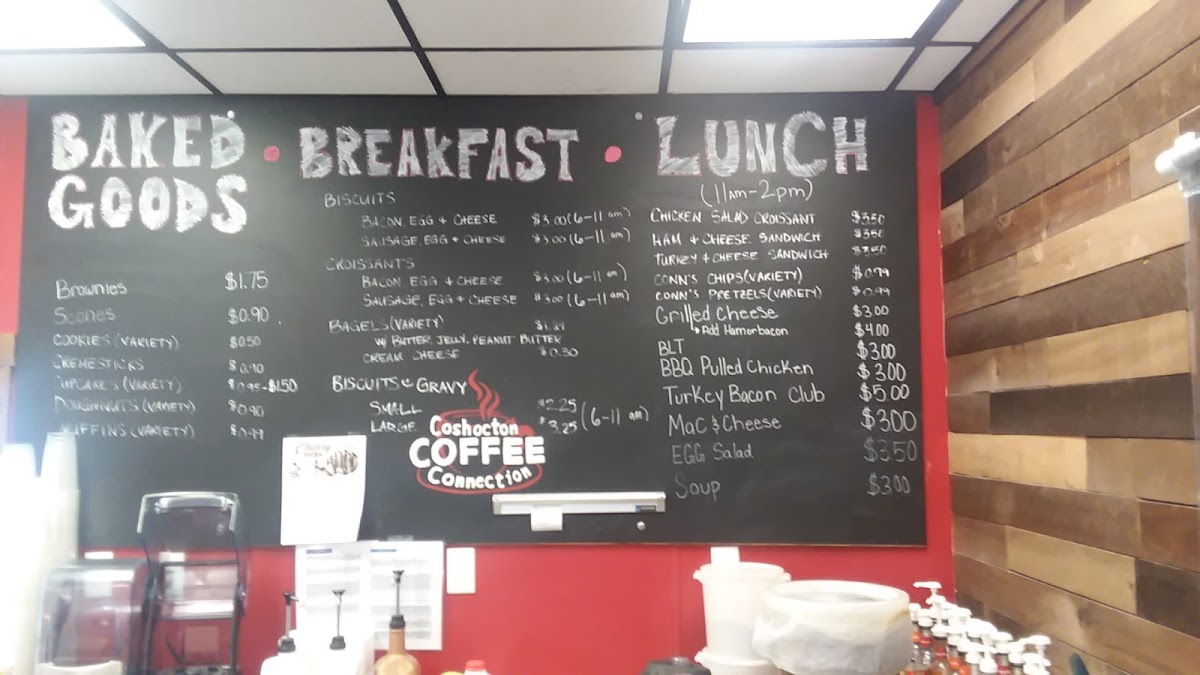 BAKED
GOODS
Brownies $1.75
Scones $0.90
COOKIES (VARIETY) $0.50
CREMESTICKS $0.90
CUPCAKES (VARIETY) $0.95-$1.50
DOUGHNUTS (VARIETY) $0.90
MUFFINS (VARIETY) $0.99
• BREAKFAST •
BISCUITS
BACON, EGG + CHEESE $3.00 (6-11 am)
SAUSAGE, EGG + CHEESE $3.00 (6-11 am)
CROISSANTS
BACON, EGG + CHEESE $3.00 (6-11 am)
SAUSAGE, EGG + CHEESE $3.00 (6-11 am)
BAGELS (VARIETY)
W/ BUTTER, JELLY, PEANUT BUTTER
CREAM CHEESE $0.30
BISCUITS & GRAVY
SMALL $2.25
LARGE $3.25 (6-11 am)
Coshocton
COFFEE
Connection
LUNCH
(11AM-2PM)
CHICKEN SALAD CROISSANT $3.50
HAM + CHEESE SANDWICH $3.50
TURKEY + CHEESE SANDWICH $3.50
CONN'S CHIPS (VARIETY) $0.99
CONN'S PRETZELS (VARIETY) $0.99
Grilled Cheese $3.00
Add Ham or bacon $4.00
BLT $3.00
BBQ Pulled Chicken $3.00
Turkey Bacon Club $5.00
Mac & Cheese $3.00
EGG Salad $3.50
Soup $3.00